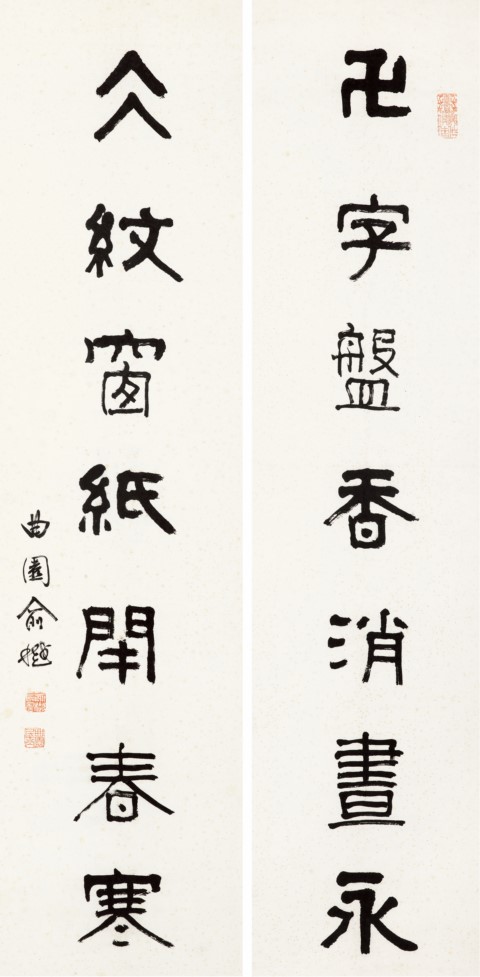 卍字盤香消晝永
仌紋窗紙閉春寒
曲園俞樾